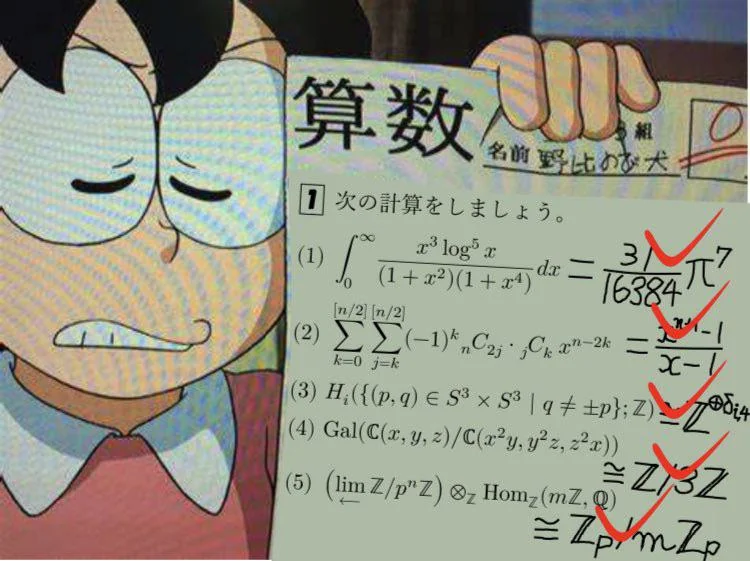 算数
3組
名前 野比のび犬
0
1 次の計算をしましょう。
(1) \int_0^\infty \frac{x^3 \log^5 x}{(1+x^2)(1+x^4)} dx = \frac{31}{16384} π^7
(2) \sum_{k=0}^{[n/2]} \sum_{j=k}^{[n/2]} (-1)^k {}_nC_{2j} · {}_jC_k x^{n-2k} = \frac{x^{n+1}-1}{x-1}
(3) H_i({(p, q) ∈ S^3 × S^3 | q ≠ ±p}; ℤ) ≅ ℤ^{⊕δ_{i,4}}
(4) Gal(ℂ(x, y, z)/ℂ(x^2y, y^2z, z^2x))
≅ ℤ/3ℤ
(5) (\lim_{←} ℤ/p^nℤ) ⊗_ℤ Hom_ℤ(mℤ, ℚ)
≅ ℤ_p/mℤ_p